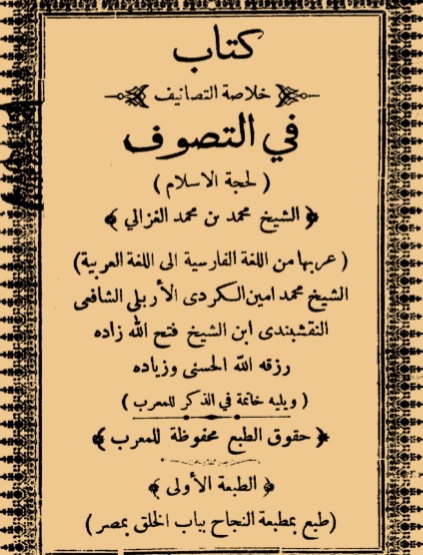 كتاب
خلاصة التصانيف
في التصوف
( لحجة الاسلام )
﴿ الشيخ محمد بن محمد الغزالي ﴾
( عربها من اللغة الفارسية الى اللغة العربية)
الشيخ محمد امين الكردى الأربلى الشافعى
النقشبندى ابن الشيخ فتح الله زاده
رزقه الله الحسنى وزياده
( ويليه خاتمة في الذكر للمعرب )
﴿ حقوق الطبع محفوظة للمعرب ﴾
﴿ الطبعة الأولى ﴾
(طبع بمطبعة النجاح بباب الخلق بمصر)